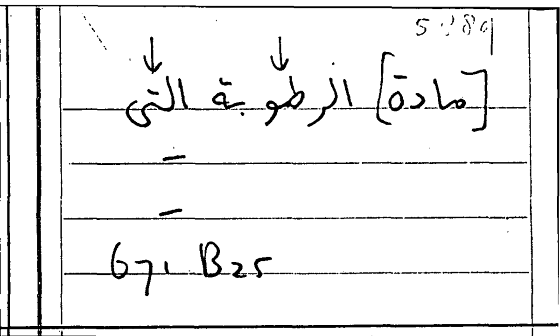 [مادة] الرطوبة التى
=
671 B25